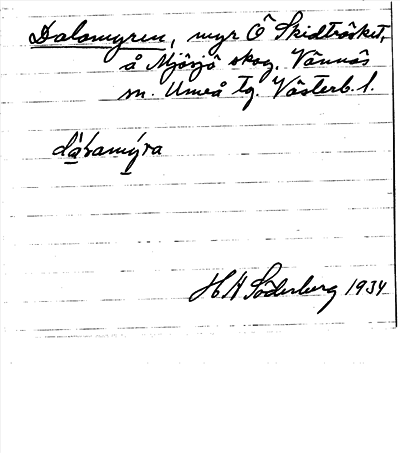 Dalamyren, myr Ö Skidträsket,
å Mjösjö skog. Vännäs
sn. Umeå tg. Västerb. l.
dàɽamýra
H H Söderberg 1934